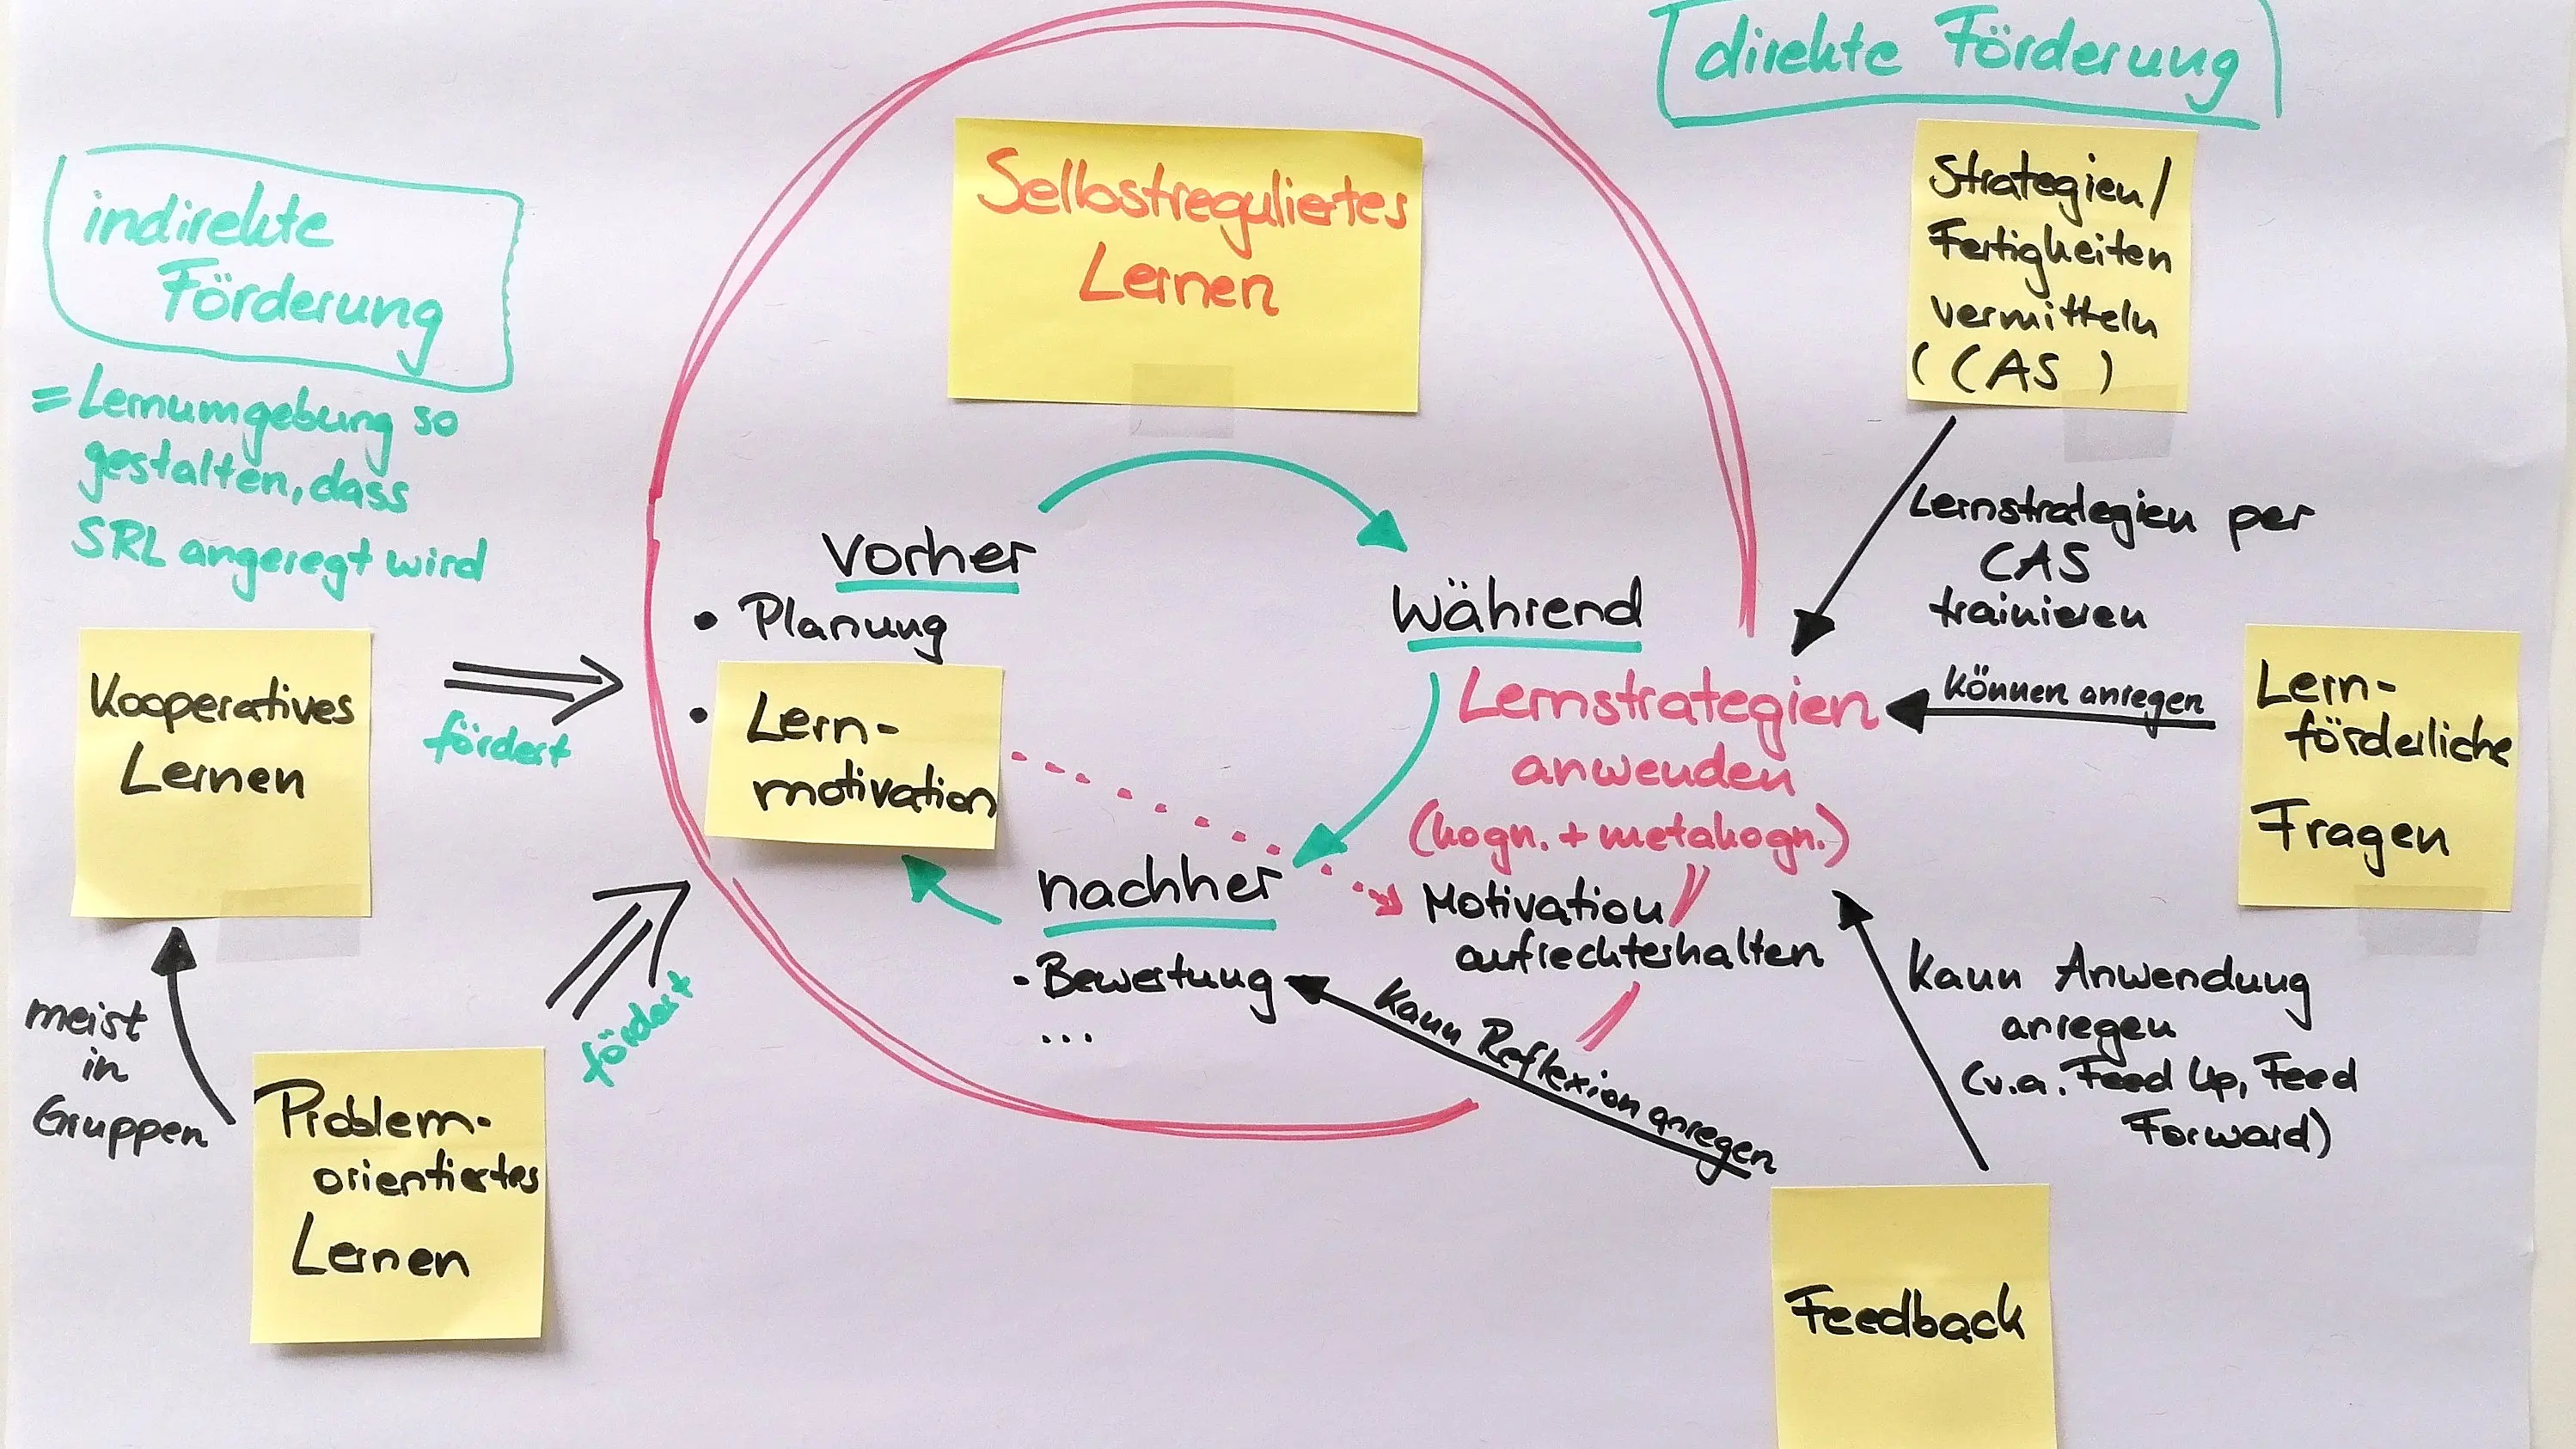 direkte Förderung
indirekte
Förderung
= Lernumgebung so
gestalten, dass
SRL angeregt wird
Selbstreguliertes
Lernen
Strategien/
Fertigkeiten
vermitteln
(CAS)
Lernstrategien per
CAS
trainieren
vorher
• Planung
• Lern-
motivation
Während
Lernstrategien
anwenden
(kogn. + metakogn.)
Motivation
aufrechterhalten
nachher
- Bewertung
...
Kooperatives
Lernen
fördert
meist
in
Gruppen
Problem-
orientiertes
Lernen
fördert
können anregen
Lern-
förderliche
Fragen
kann Reflexion anregen
kann Anwendung
anregen
(v.a. Feed Up, Feed
Forward)
Feedback